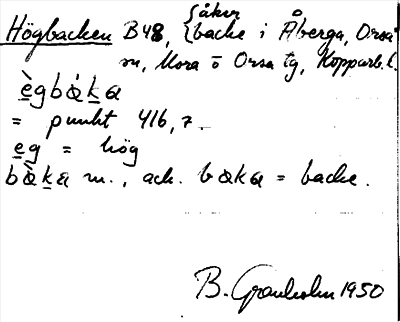 Högbacken B48, {åker
{backe i Åberga, Orsa
sn, Mora o Orsa tg, Kopparb. l.
ègbàka
= punkt 416, 7.
eg = hög
bàka m., ack. baka = backe.
B. Granholm 1950